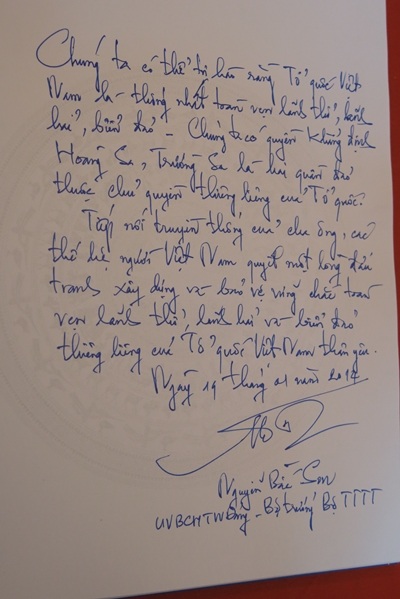 Chúng ta có thể tự hào rằng Tổ quốc Việt
Nam là thống nhất toàn vẹn lãnh thổ, lãnh
hải, biển đảo – Chúng ta có quyền khẳng định
Hoàng Sa, Trường Sa là hai quần đảo
thuộc chủ quyền thiêng liêng của Tổ quốc.
Tiếp nối truyền thống của cha ông, các
thế hệ người Việt Nam quyết một lòng đấu
tranh xây dựng và bảo vệ vững chắc toàn
vẹn lãnh thổ, lãnh hải và biển đảo
thiêng liêng của Tổ quốc Việt Nam thân yêu.
Ngày 19 tháng 01 năm 2014
Nguyễn Bắc Son
UVBCHTW Đảng - Bộ trưởng Bộ TTTT